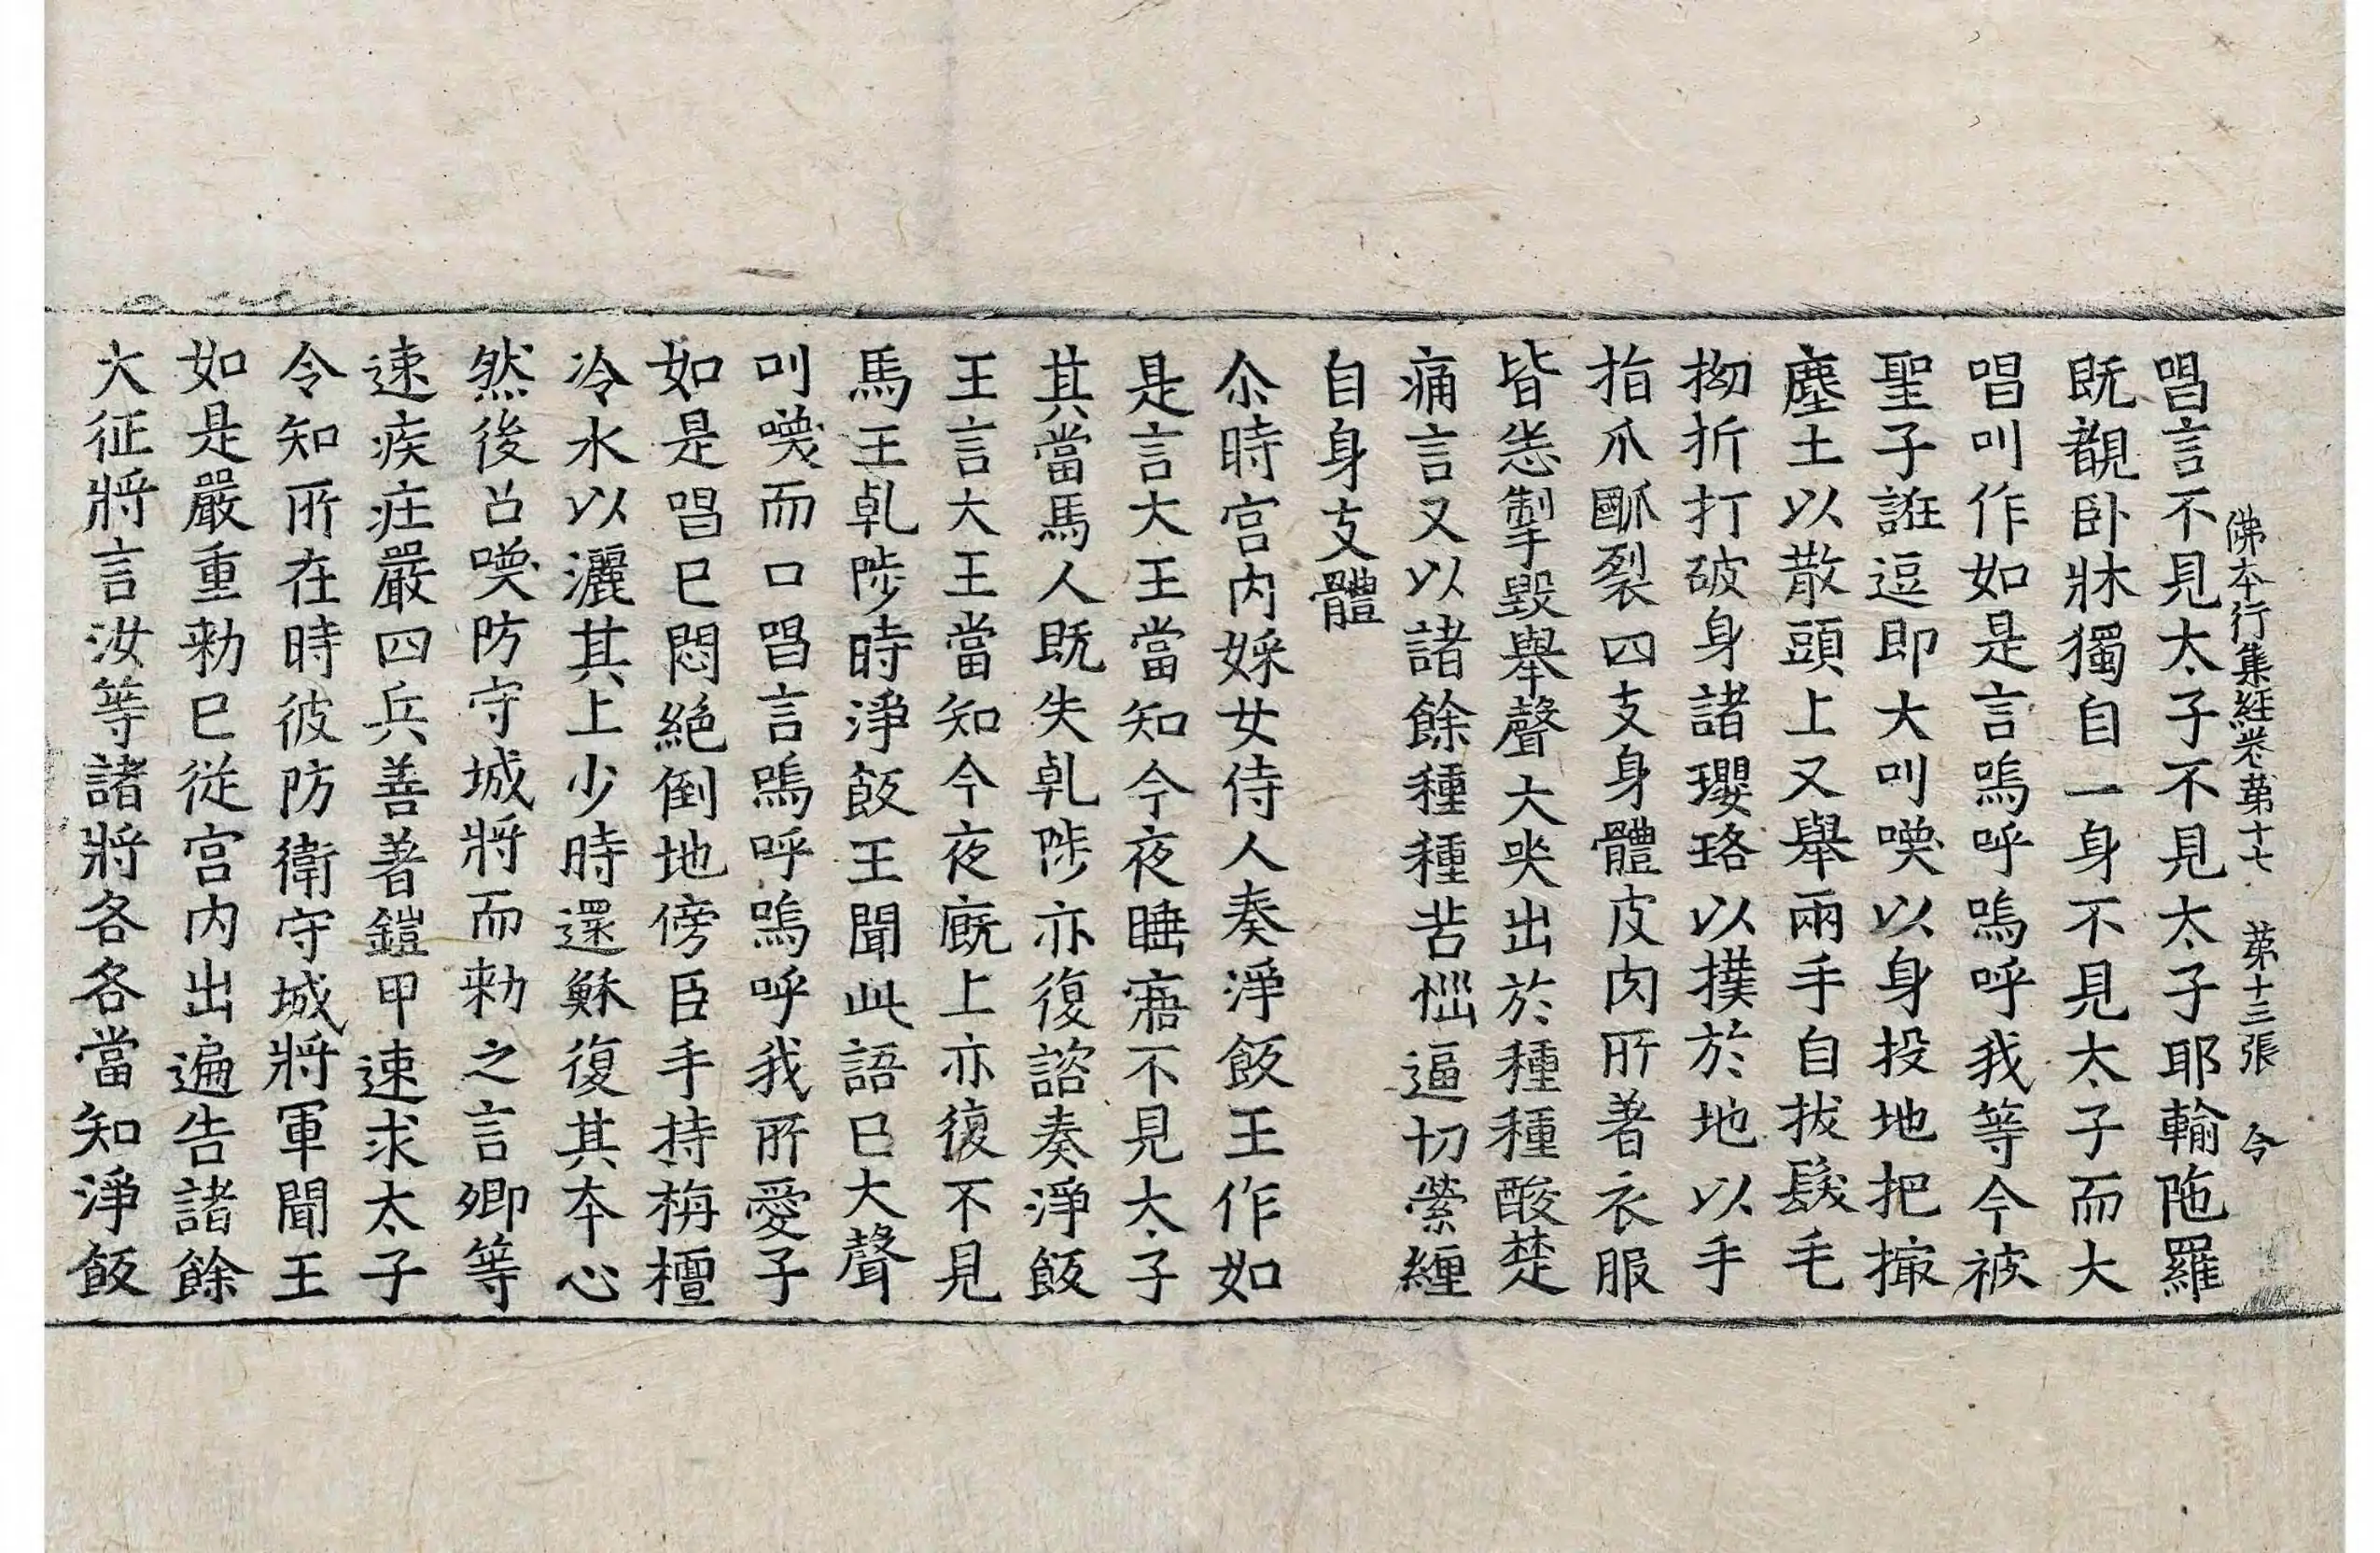 佛本行集經卷第十七 第十三張 令
唱言不見太子不見太子耶輸陁羅
旣覩卧牀獨自一身不見太子而大
唱叫作如是言嗚呼嗚呼我等今被
聖子誑逗即大叫喚以身投地把撮
塵土以散頭上又舉兩手自拔髮毛
拗折打破身諸瓔珞以撲於地以手
指爪𤔩裂四支身體皮肉所著衣服
皆悉掣毀舉聲大哭出於種種酸楚
痛言又以諸餘種種苦惱逼切縈纏
自身支體
尒時宮內婇女侍人奏淨飯王作如
是言大王當知今夜睡寤不見太子
其當馬人旣失乹陟亦復諮奏淨飯
王言大王當知今夜廐上亦復不見
馬王乹陟時淨飯王聞此語已大聲
叫喚而口唱言嗚呼嗚呼我所愛子
如是唱已悶絕倒地傍臣手持栴檀
冷水以灑其上少時還穌復其本心
然後召喚防守城將而勑之言卿等
速疾莊嚴四兵善著鎧甲速求太子
令知所在時彼防衛守城將軍聞王
如是嚴重勑已從宮內出遍告諸餘
大征將言汝等諸將各各當知淨飯